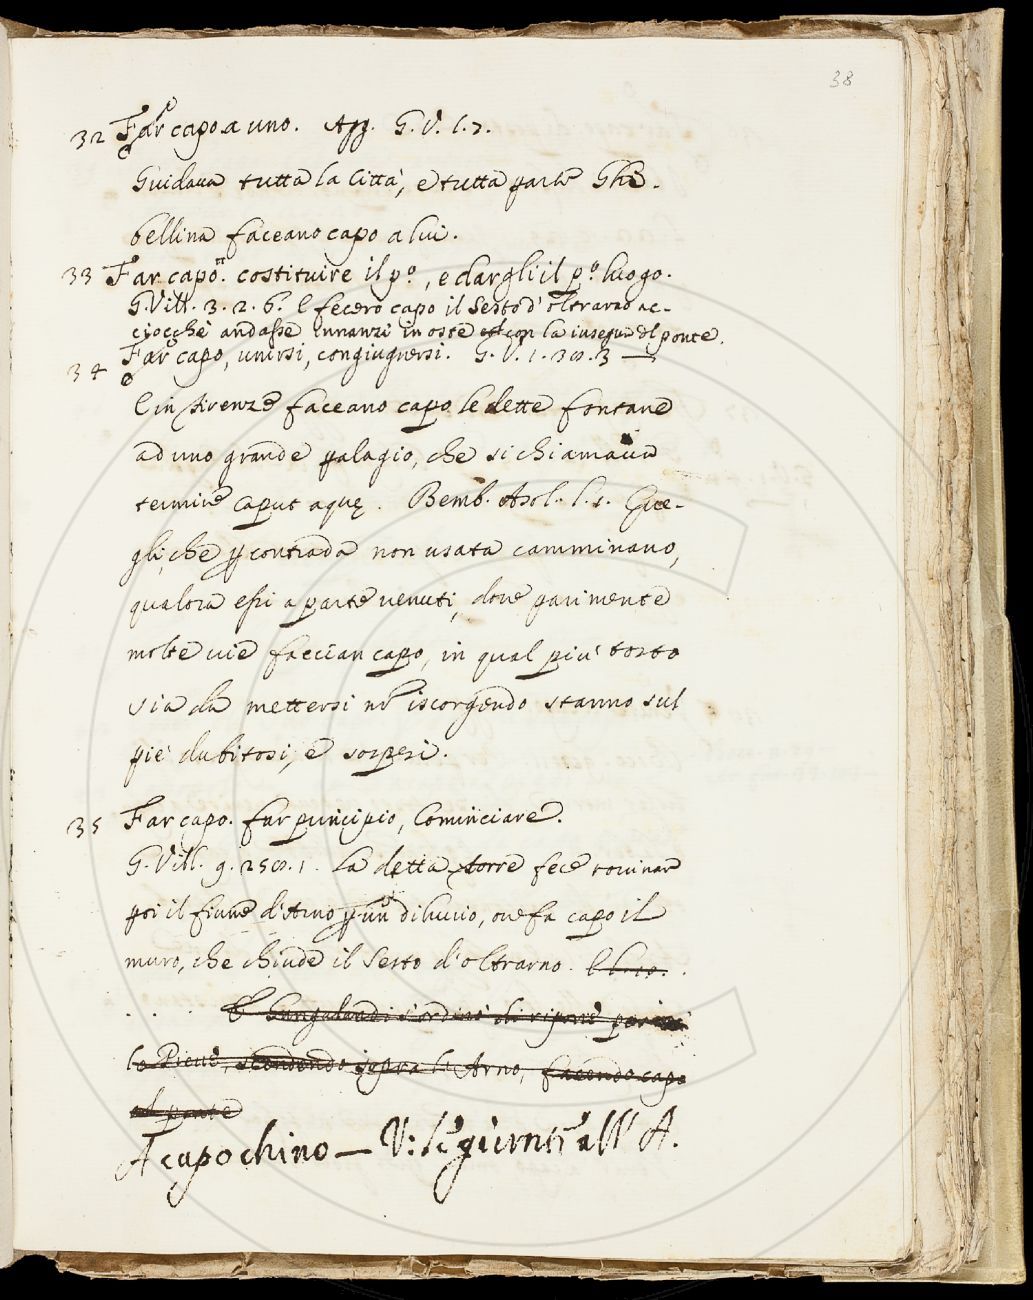 38
32 Far capo a uno. App. G. V. l. 7.
Guidava tutta la Città, e tutta parte Ghi-
bellina faceano capo a lui.
33 Far capo. costituire il po, e dargli il po luogo.
G. Vill. 3. 2. 6. E fecero capo il Sesto d'oltrarno ac-
ciocchè andasse innanzi in oste con la insegna del ponte.
34 Far capo, unirsi, congiugnersi. G. V. 1. 38. 3 —
E in Firenze faceano capo le dette fontane
ad uno grande palagio, che si chiamava
termine caput aquę. Bemb. Asol. l. 1. Que-
gli, che p contrada non usata camminano,
qualora essi a parte venuti, dove parimente
molte vie faccian capo, in qual più tosto
sia da mettersi nō iscorgendo stanno sul
piè dubitosi, e sospesi.
35 Far capo. far principio, Cominciare.
G. Vill. 9. 258. 1. La detta torre fece rovinar
poi il fiume d'Arno p un diluvio, ove fa capo il
muro, che chiude il Sesto d'oltrarno. E l. 10.
. . . E Gangalandi s'ordinò di riporre
lo Pieve, scendendo sopra l'Arno, facendo capo
al ponte
A capo chino — V: le giunte all' A.